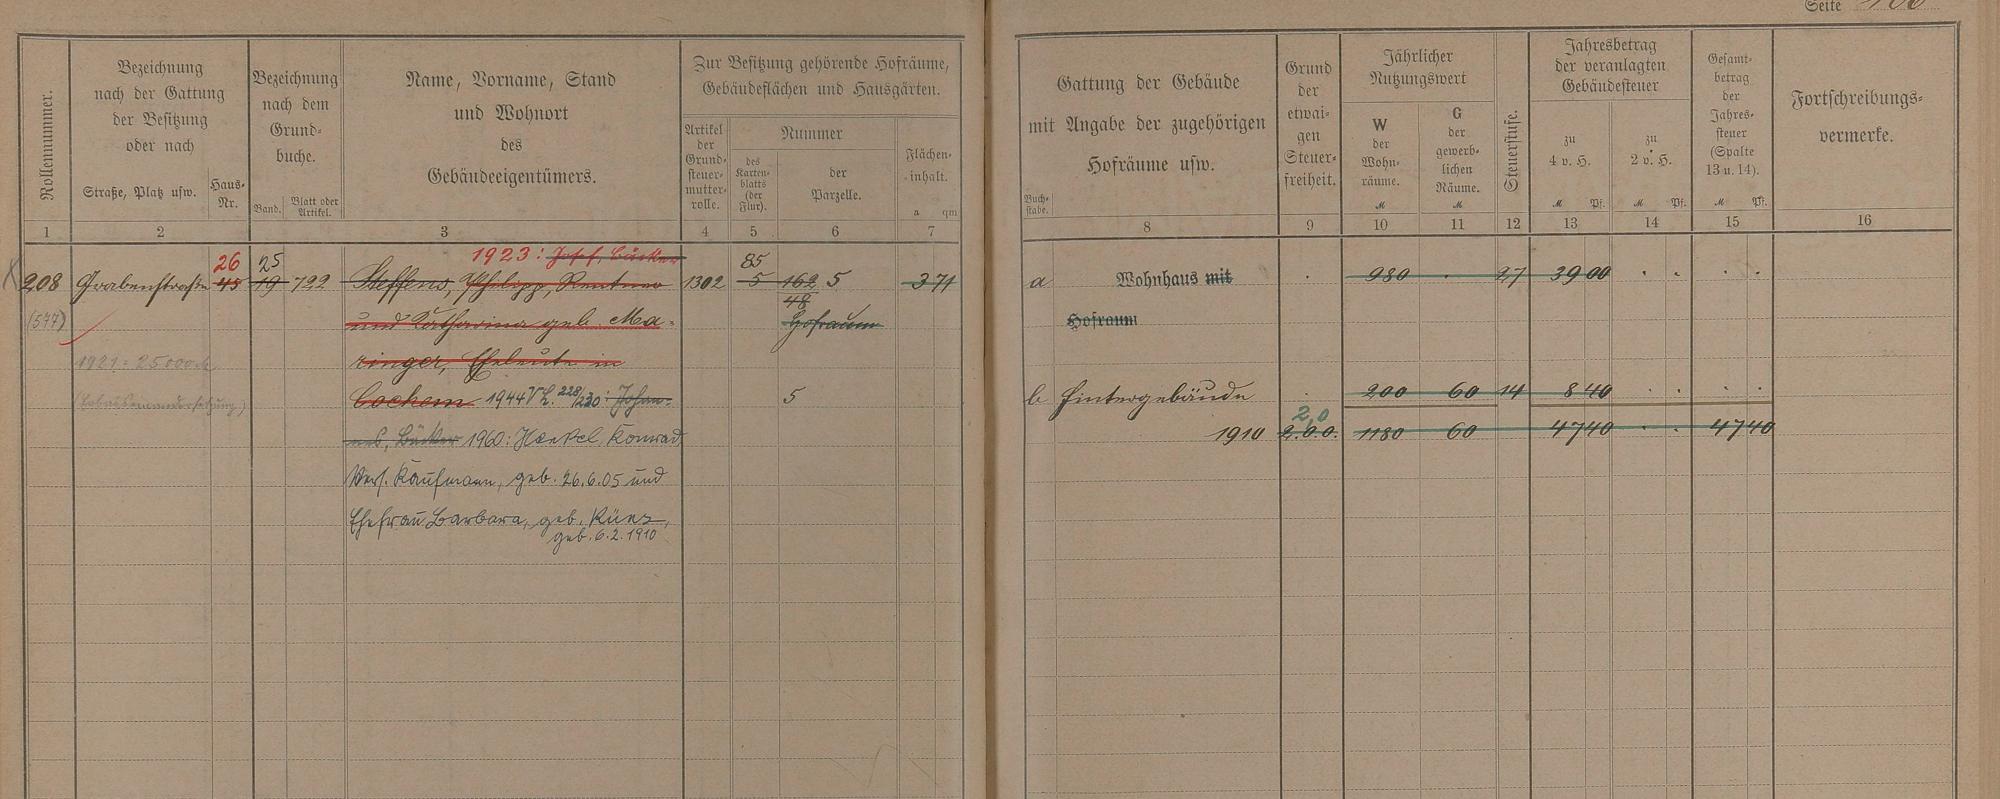 Seite
Rollennummer.
Bezeichnung
nach der Gattung
der Besitzung
oder nach
Straße, Platz usw.
Haus-
Nr.
Bezeichnung
nach dem
Grund-
buche.
Band.
Blatt oder
Artikel.
Name, Vorname, Stand
und Wohnort
des
Gebäudeeigentümers.
Zur Besitzung gehörende Hofräume,
Gebäudeflächen und Hausgärten.
Artikel
der
Grund-
steuer-
mutter-
rolle.
Nummer
des
Karten-
blatts
(der
Flur).
der
Parzelle.
Flächen-
inhalt.
a qm
1 2 3 4 5 6 7
Buch-
stabe.
Gattung der Gebäude
mit Angabe der zugehörigen
Hofräume usw.
Grund
der
etwai-
gen
Steuer-
freiheit.
Jährlicher
Nutzungswert
W
der
Wohn-
räume.
M
G
der
gewerb-
lichen
Räume.
M
Steuerstufe.
Jahresbetrag
der veranlagten
Gebäudesteuer
zu
4 v. H.
M Pf.
zu
2 v. H.
M Pf.
Gesamt-
betrag
der
Jahres-
steuer
(Spalte
13 u. 14).
M Pf.
Fortschreibungs-
vermerke.
8 9 10 11 12 13 14 15 16
26 25 1923: Josef, Bäcker 85
208 Grabenstraße 45 19 722 Steffens, Philipp, Rentner 1302 5 162 5 3 71
48
(577) und Katharina geb. Ma- Hofraum
1921: 25000 M ringer, Eheleute in
Cochem 1944 VL. 228/230: Johan- 5
nes, Bäcker 1960: Henkel, Konrad
Vers. Kaufmann, geb. 26.6.05 und
Ehefrau Barbara, geb. Künz,
geb. 6.2.1910
a Wohnhaus mit 980 27 39 00
Hofraum
b Hintergebäude 200 60 14 8 40
2,0
1910 2.0.0. 1180 60 47 40 47 40